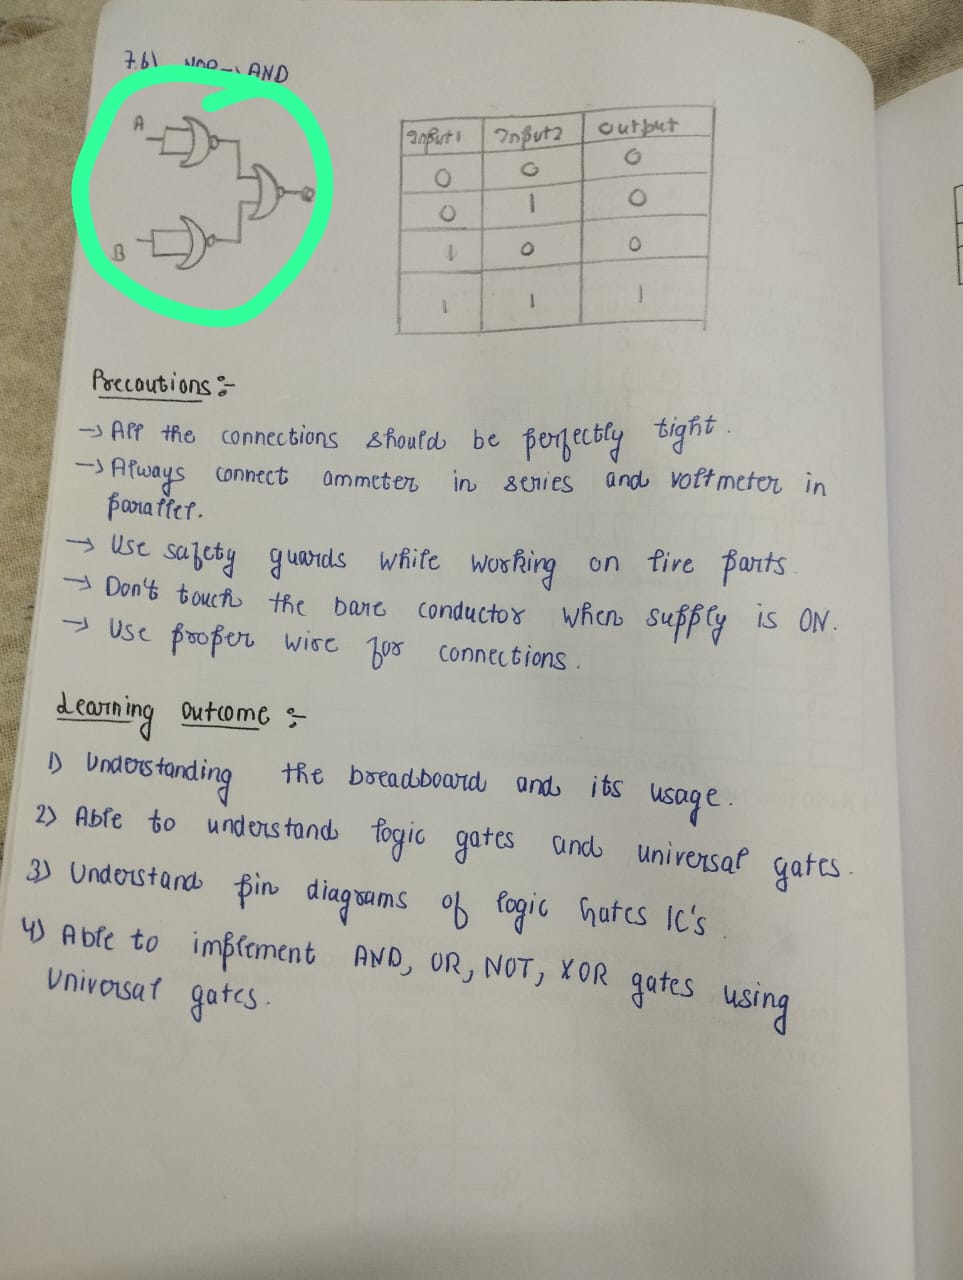 7.b) NOR → AND
A
B
Input1 Input2 Output
0 0 0
0 1 0
1 0 0
1 1 1
Precautions :-
→ All the connections should be perfectly tight.
→ Always connect ammeter in series and voltmeter in
parallel.
→ Use safety guards while working on live parts.
→ Don't touch the bare conductor when supply is ON.
→ Use proper wire for connections.
Learning outcome :-
1) Understanding the breadboard and its usage.
2) Able to understand logic gates and universal gates.
3) Understand pin diagrams of logic hates IC's.
4) Able to implement AND, OR, NOT, XOR gates using
Universal gates.